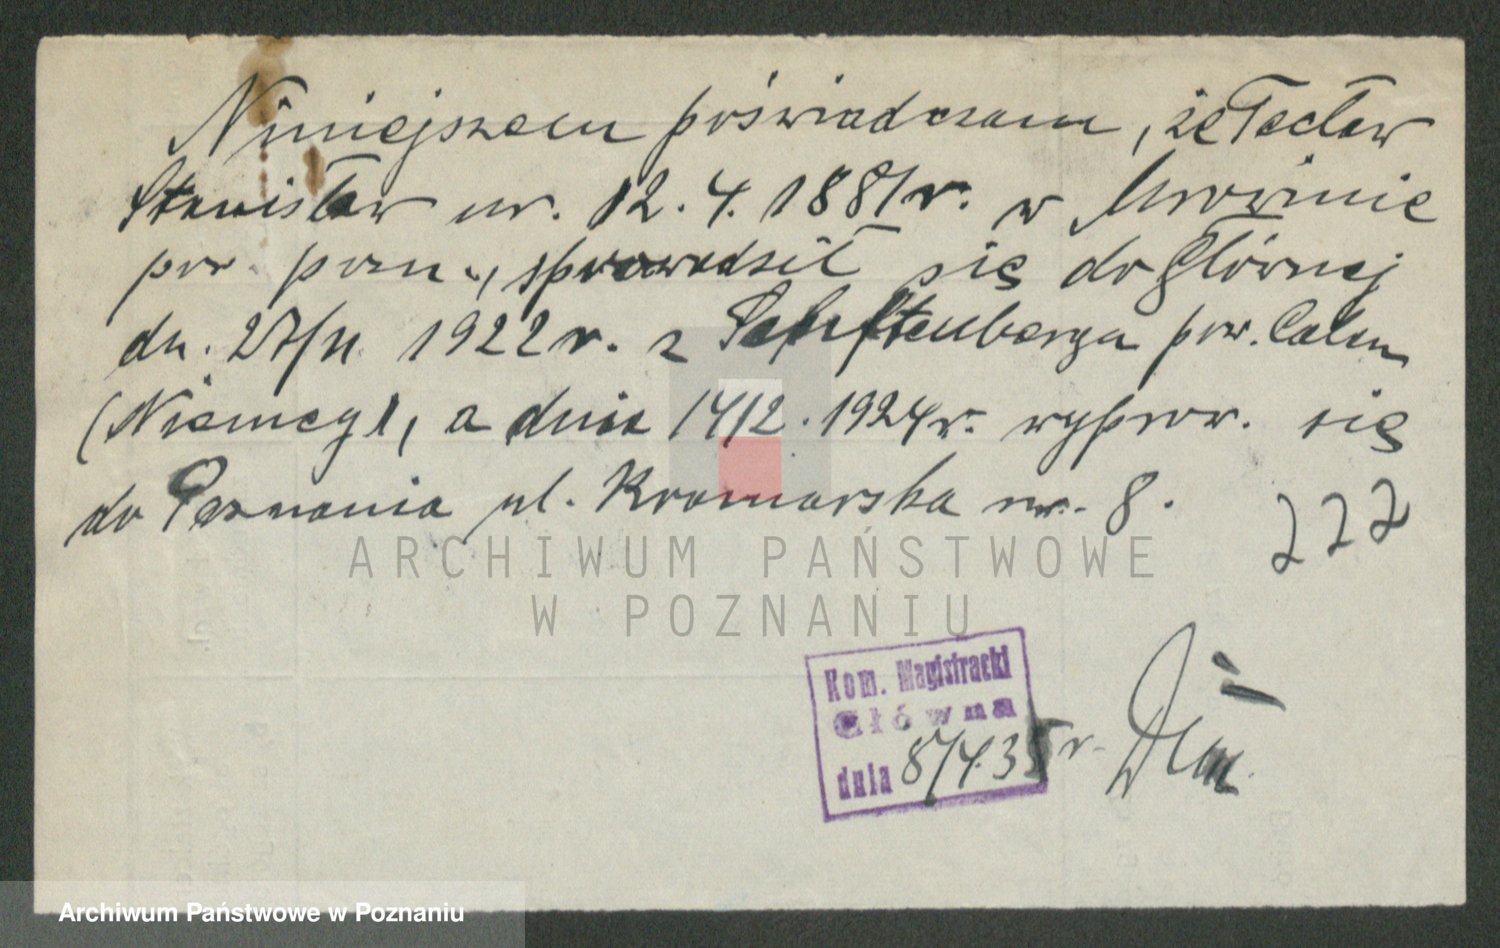 Niniejszem poświadczam, że Tecław
Stanisław ur. 12.4.1881 r. w Mrowinie
pow. pozn., sprowadził się do Głównej
dn. 27/II 1922 r. z Senftenberga pow. Calau
(Niemcy), a dnia 14/2. 1924 r. wyprow. się
do Poznania ul. Kramarska nr. 8.
222
ARCHIWUM PAŃSTWOWE
W POZNANIU
Kom. Magistracki
Główna
dnia 8/4.35 r.
Archiwum Państwowe w Poznaniu